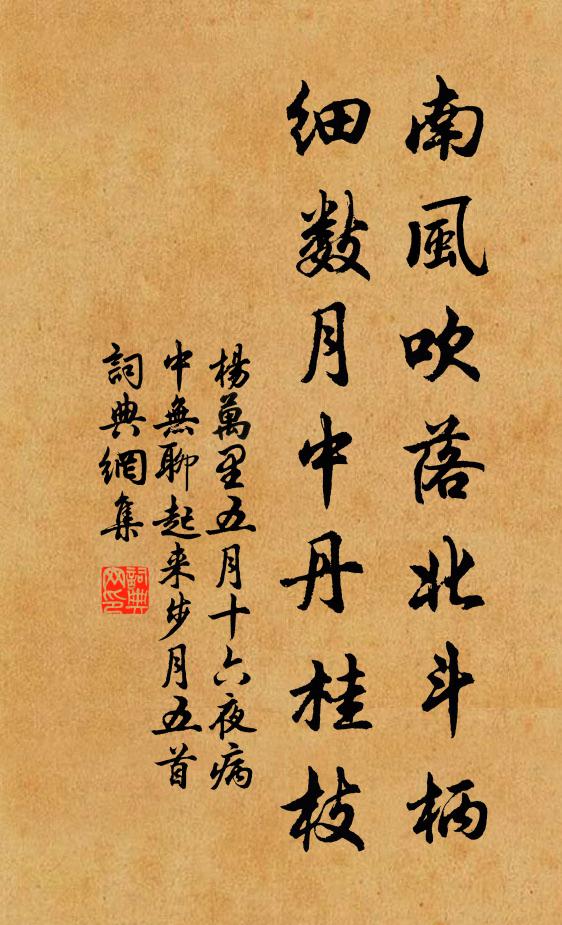 南風吹落北斗柄
細數月中丹桂枝
楊萬里五月十六夜病
中無聊起来步月五首
詞典網集
詞典
网印